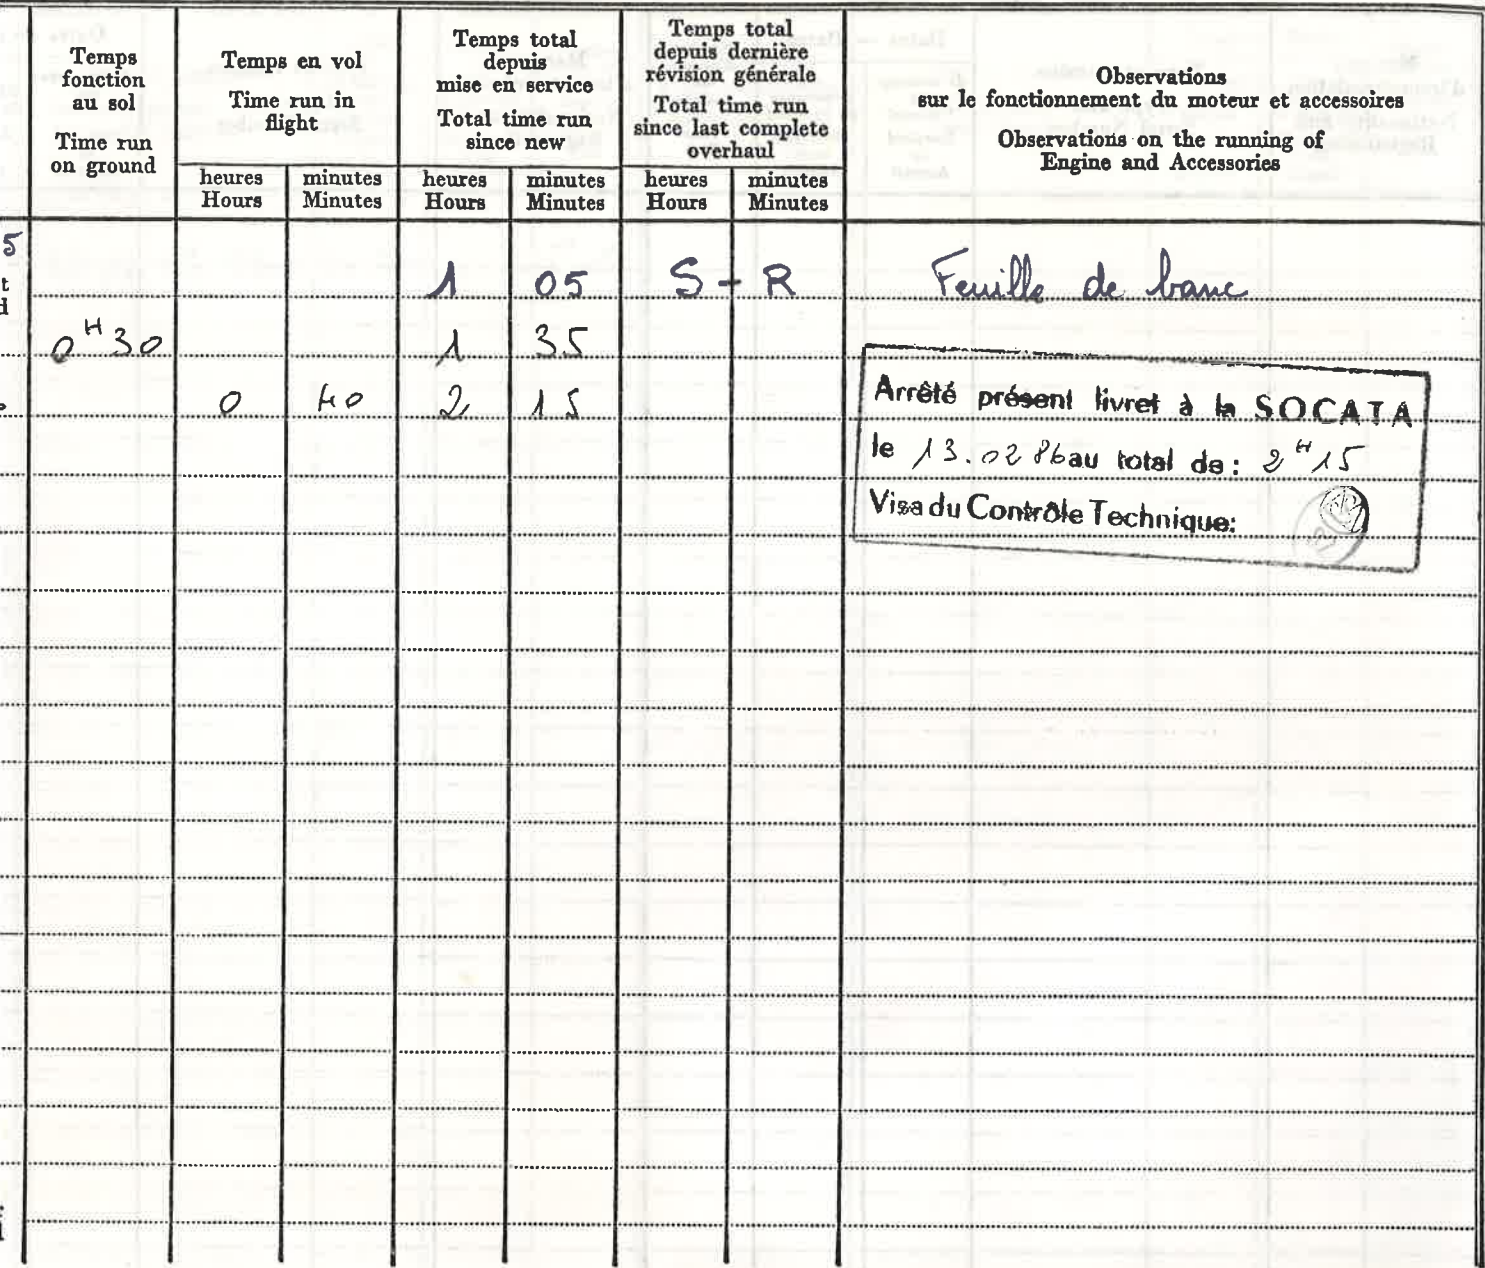 Temps
fonction
au sol
Time run
on ground
Temps en vol
Time run in
flight
heures
Hours
minutes
Minutes
Temps total
depuis
mise en service
Total time run
since new
heures
Hours
minutes
Minutes
Temps total
depuis dernière
révision générale
Total time run
since last complete
overhaul
heures
Hours
minutes
Minutes
Observations
sur le fonctionnement du moteur et accessoires
Observations on the running of
Engine and Accessories
5
t
d
1 05 S - R Feuille de banc
0 H 30 1 35
0 40 2 15
Arrêté présent livret à la SOCATA
le 13.02 86 au total de : 2 H 15
Visa du Contrôle Technique: